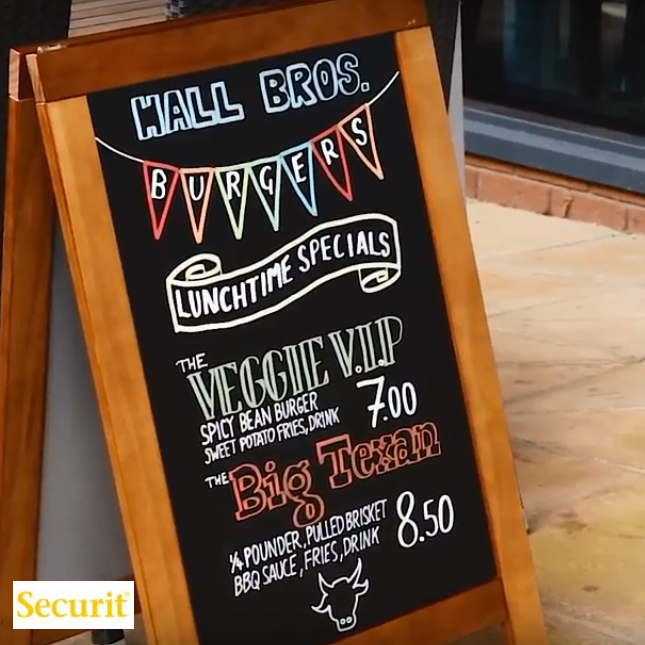 HALL BROS.
BURGERS
LUNCHTIME SPECIALS
THE
VEGGIE V.I.P
SPICY BEAN BURGER
SWEET POTATO FRIES, DRINK
7.00
THE
Big Texan
¼ POUNDER, PULLED BRISKET
BBQ SAUCE, FRIES, DRINK
8.50
Securit